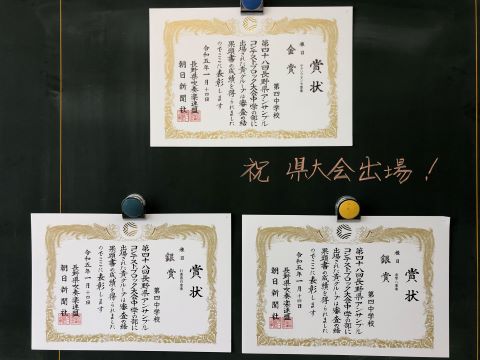 賞状
種目
金賞
第四中学校
第四十八回長野県アンサンブル
コンテストブロック大会中学の部に
出場された貴グループは審査の結
果頭書の成績を得られました
のでここに表彰します
令和五年一月十四日
長野県吹奏楽連盟
朝日新聞社
祝 県大会出場!
賞状
種目
銀賞
第四中学校
第四十八回長野県アンサンブル
コンテストブロック大会中学の部に
出場された貴グループは審査の結
果頭書の成績を得られました
のでここに表彰します
令和五年一月十四日
長野県吹奏楽連盟
朝日新聞社
賞状
種目
銀賞
第四中学校
第四十八回長野県アンサンブル
コンテストブロック大会中学の部に
出場された貴グループは審査の結
果頭書の成績を得られました
のでここに表彰します
令和五年一月十四日
長野県吹奏楽連盟
朝日新聞社